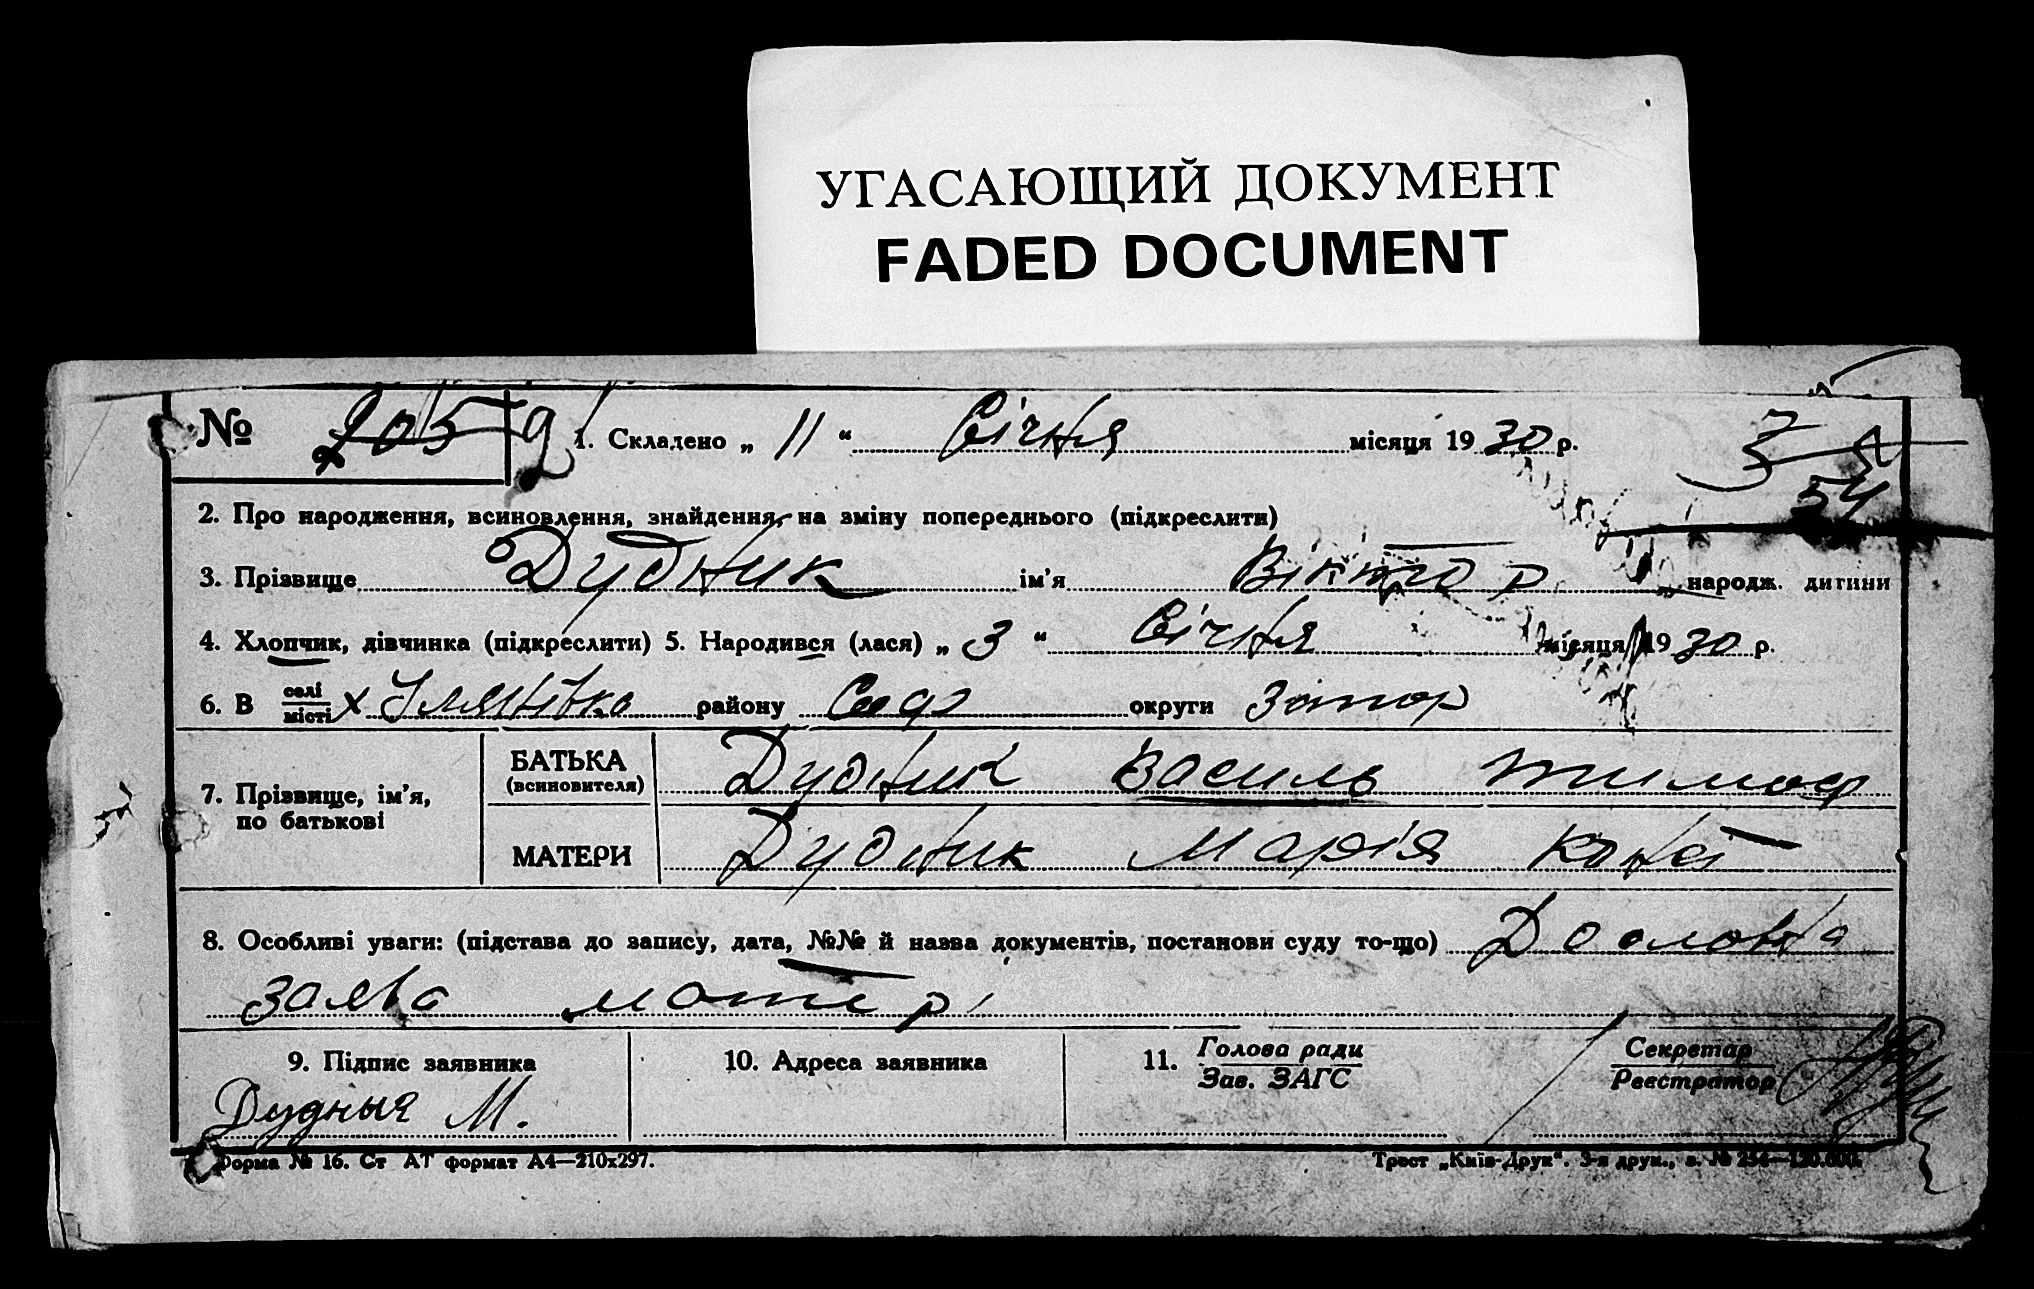 УГАСАЮЩИЙ ДОКУМЕНТ
FADED DOCUMENT
№ 205 1. Складено „ 11 “ Січня місяця 1930 р.
54
2. Про народження, всиновлення, знайдення, на зміну попереднього (підкреслити)
3. Прізвище Дудник ім'я Віктор народж. дитини
4. Хлопчик, дівчинка (підкреслити) 5. Народився (лася) „ 3 “ Січня місяця 1930 р.
6. В селі місті х району округи Запор
7. Прізвище, ім'я, по батькові
БАТЬКА (всиновителя) Дудник Василь Тимоф
МАТЕРИ Дудник Марія
8. Особливі уваги: (підстава до запису, дата, №№ й назва документів, постанови суду то-що)
заява матері
9. Підпис заявника 10. Адреса заявника 11. Голова ради Зав. ЗАГС Секретар Реєстратор
М.
Форма № 16. Ст АТ формат А4—210х297. Трест „Київ-Друк“. 3-я друк., з. №